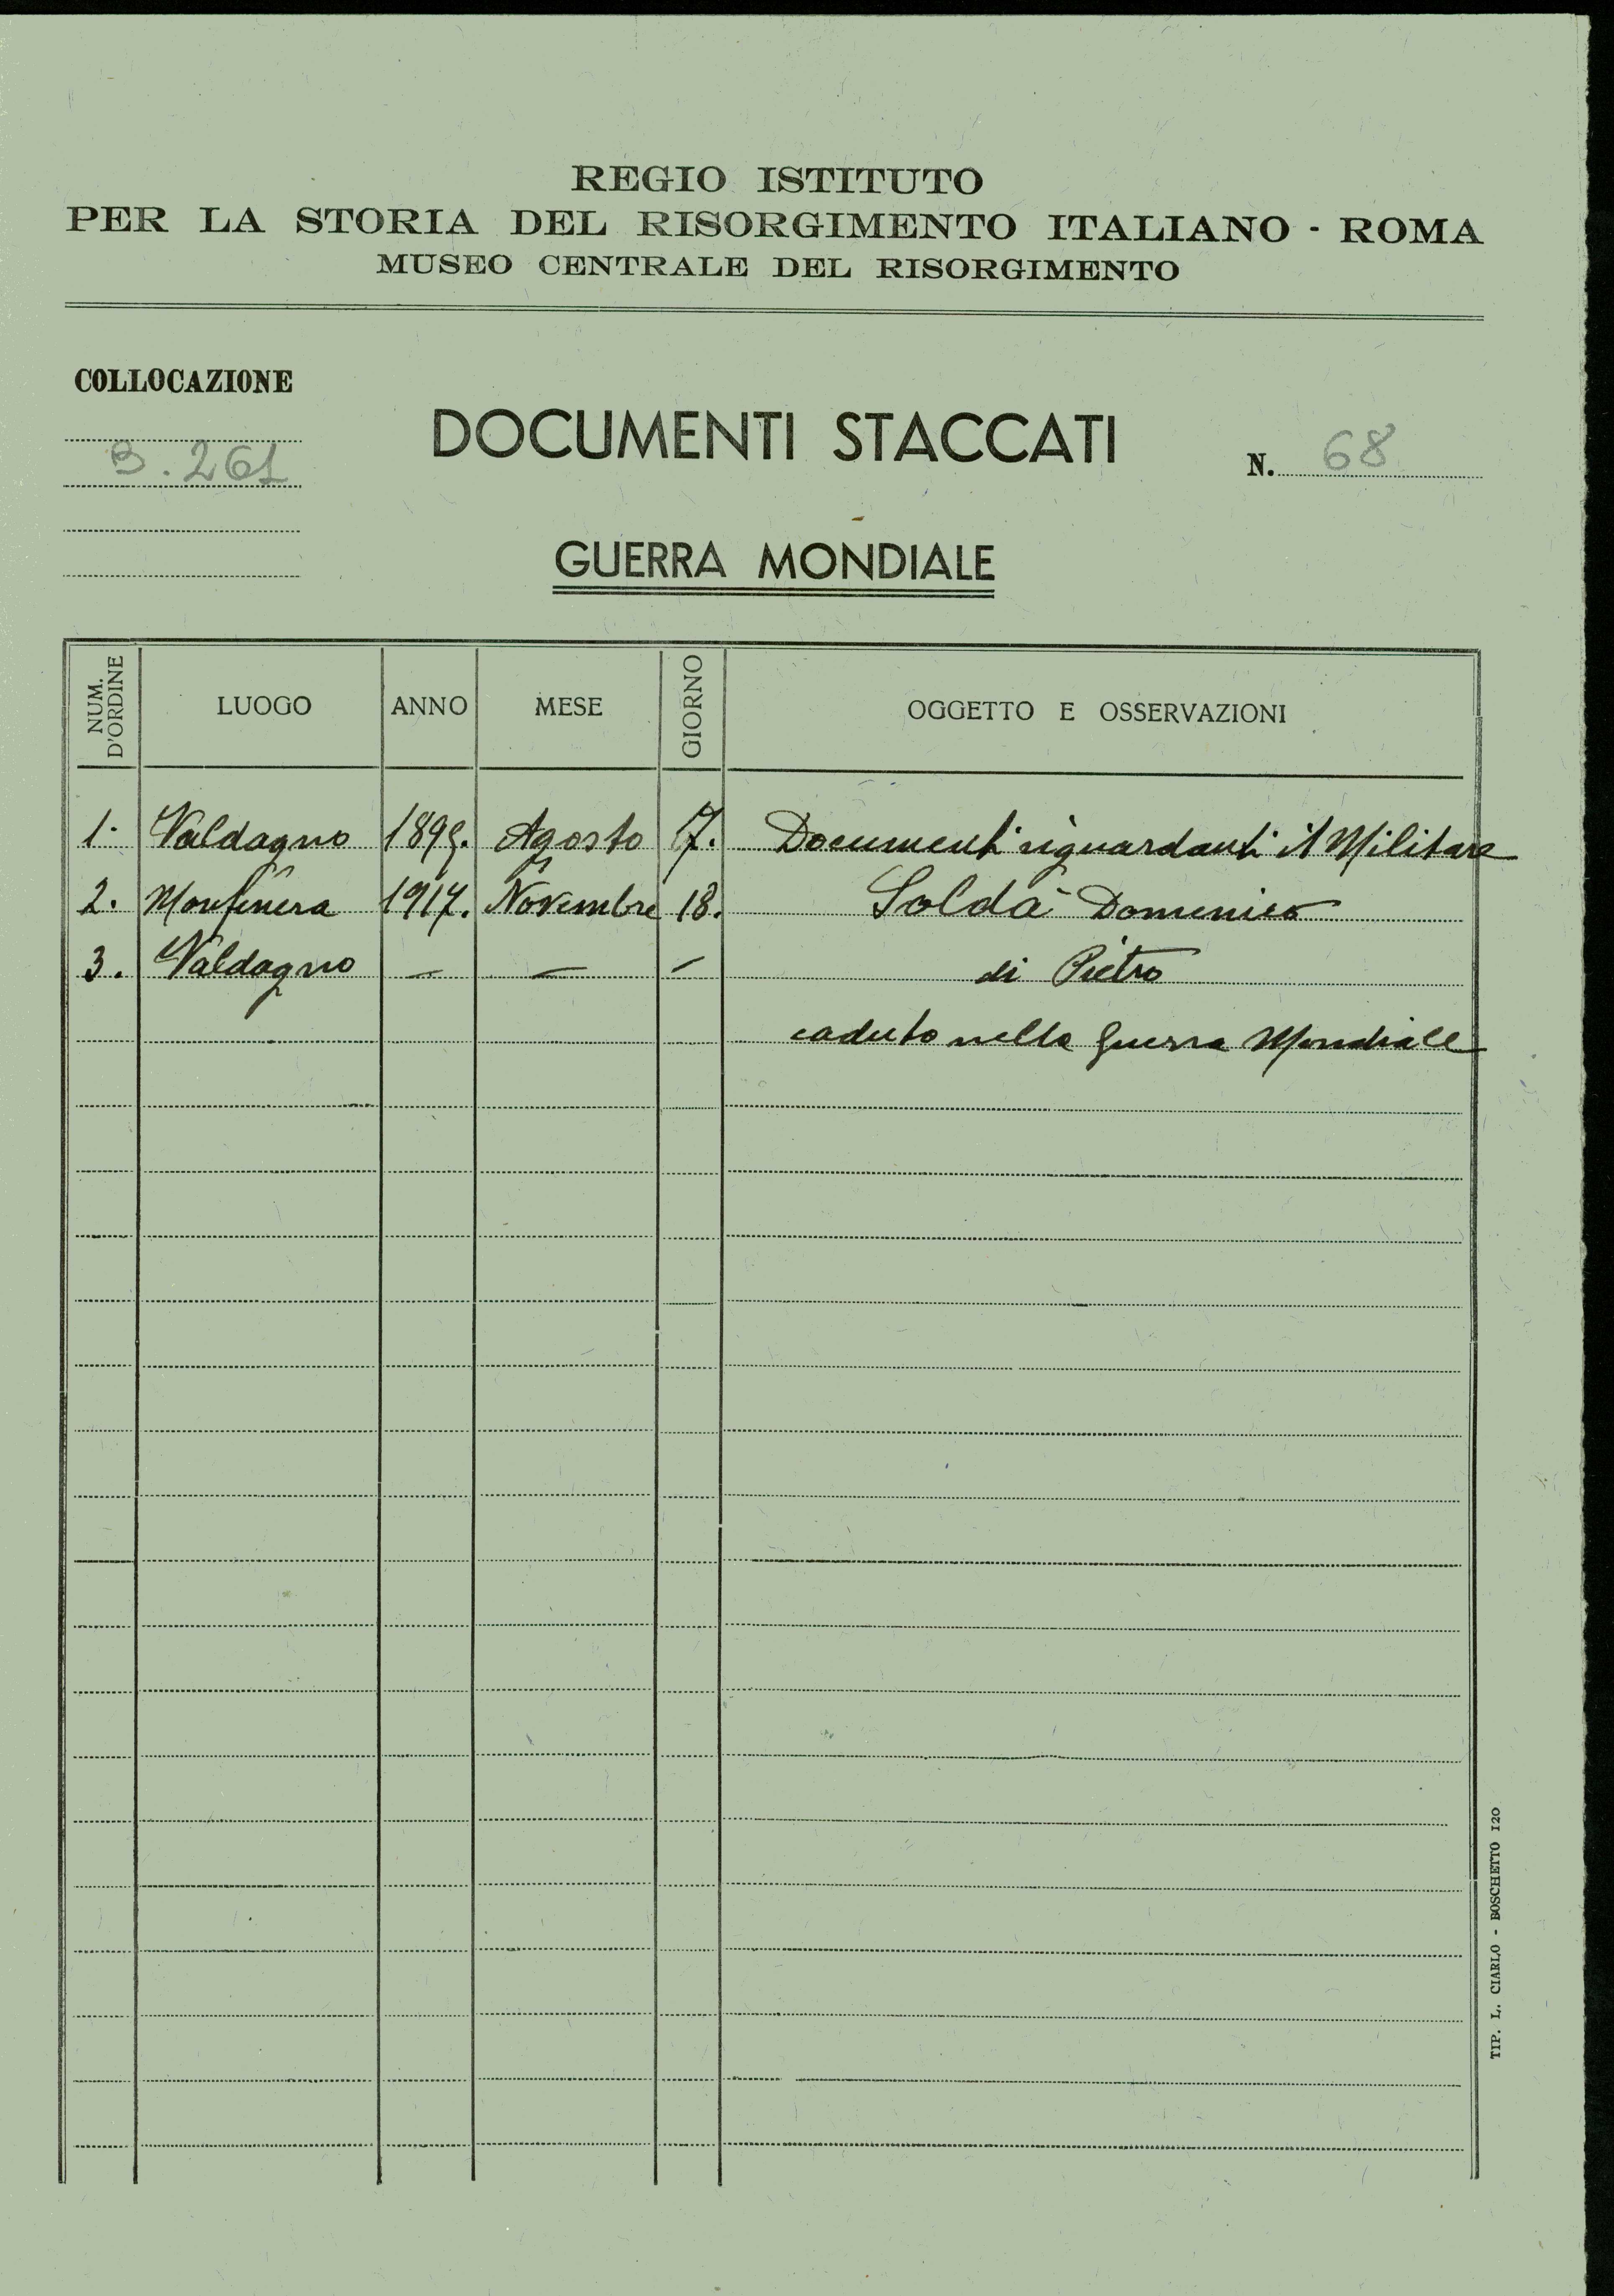 REGIO ISTITUTO
PER LA STORIA DEL RISORGIMENTO ITALIANO - ROMA
MUSEO CENTRALE DEL RISORGIMENTO
COLLOCAZIONE
B. 261
DOCUMENTI STACCATI
N. 68
GUERRA MONDIALE
NUM. D'ORDINE LUOGO ANNO MESE GIORNO OGGETTO E OSSERVAZIONI
1. Valdagno 1899. Agosto 7. Documenti riguardanti il Militare
2. Monfenera 1917. Novembre 18. Soldà Domenico
3. Valdagno — — — di Pietro
caduto nella Guerra Mondiale
TIP. L. CIARLO - BOSCHETTO 120